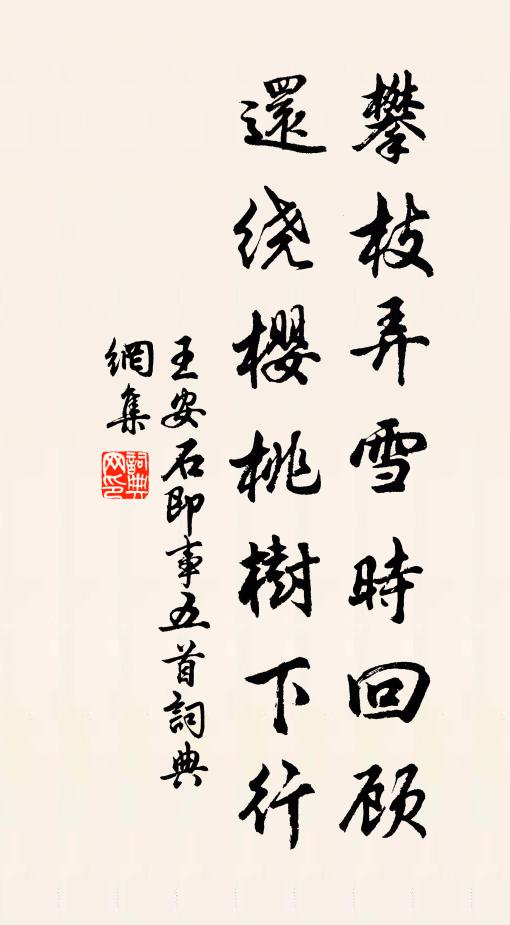 攀枝弄雪時回顾
還绕櫻桃樹下行
王安石即事五首詞典
網集
詞典网印